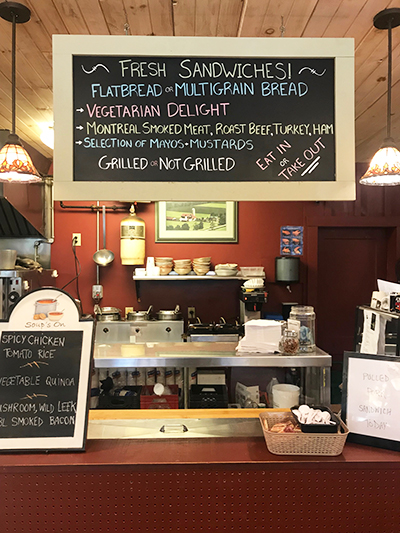 FRESH SANDWICHES!
FLATBREAD OR MULTIGRAIN BREAD
→ VEGETARIAN DELIGHT
→ MONTREAL SMOKED MEAT, ROAST BEEF, TURKEY, HAM
→ SELECTION OF MAYOS • MUSTARDS
GRILLED OR NOT GRILLED
EAT IN
OR
TAKE OUT
SOUP'S ON
SPICY CHICKEN
TOMATO RICE
VEGETABLE QUINOA
MUSHROOM, WILD LEEK
SMOKED BACON
SANDWICH
TODAY